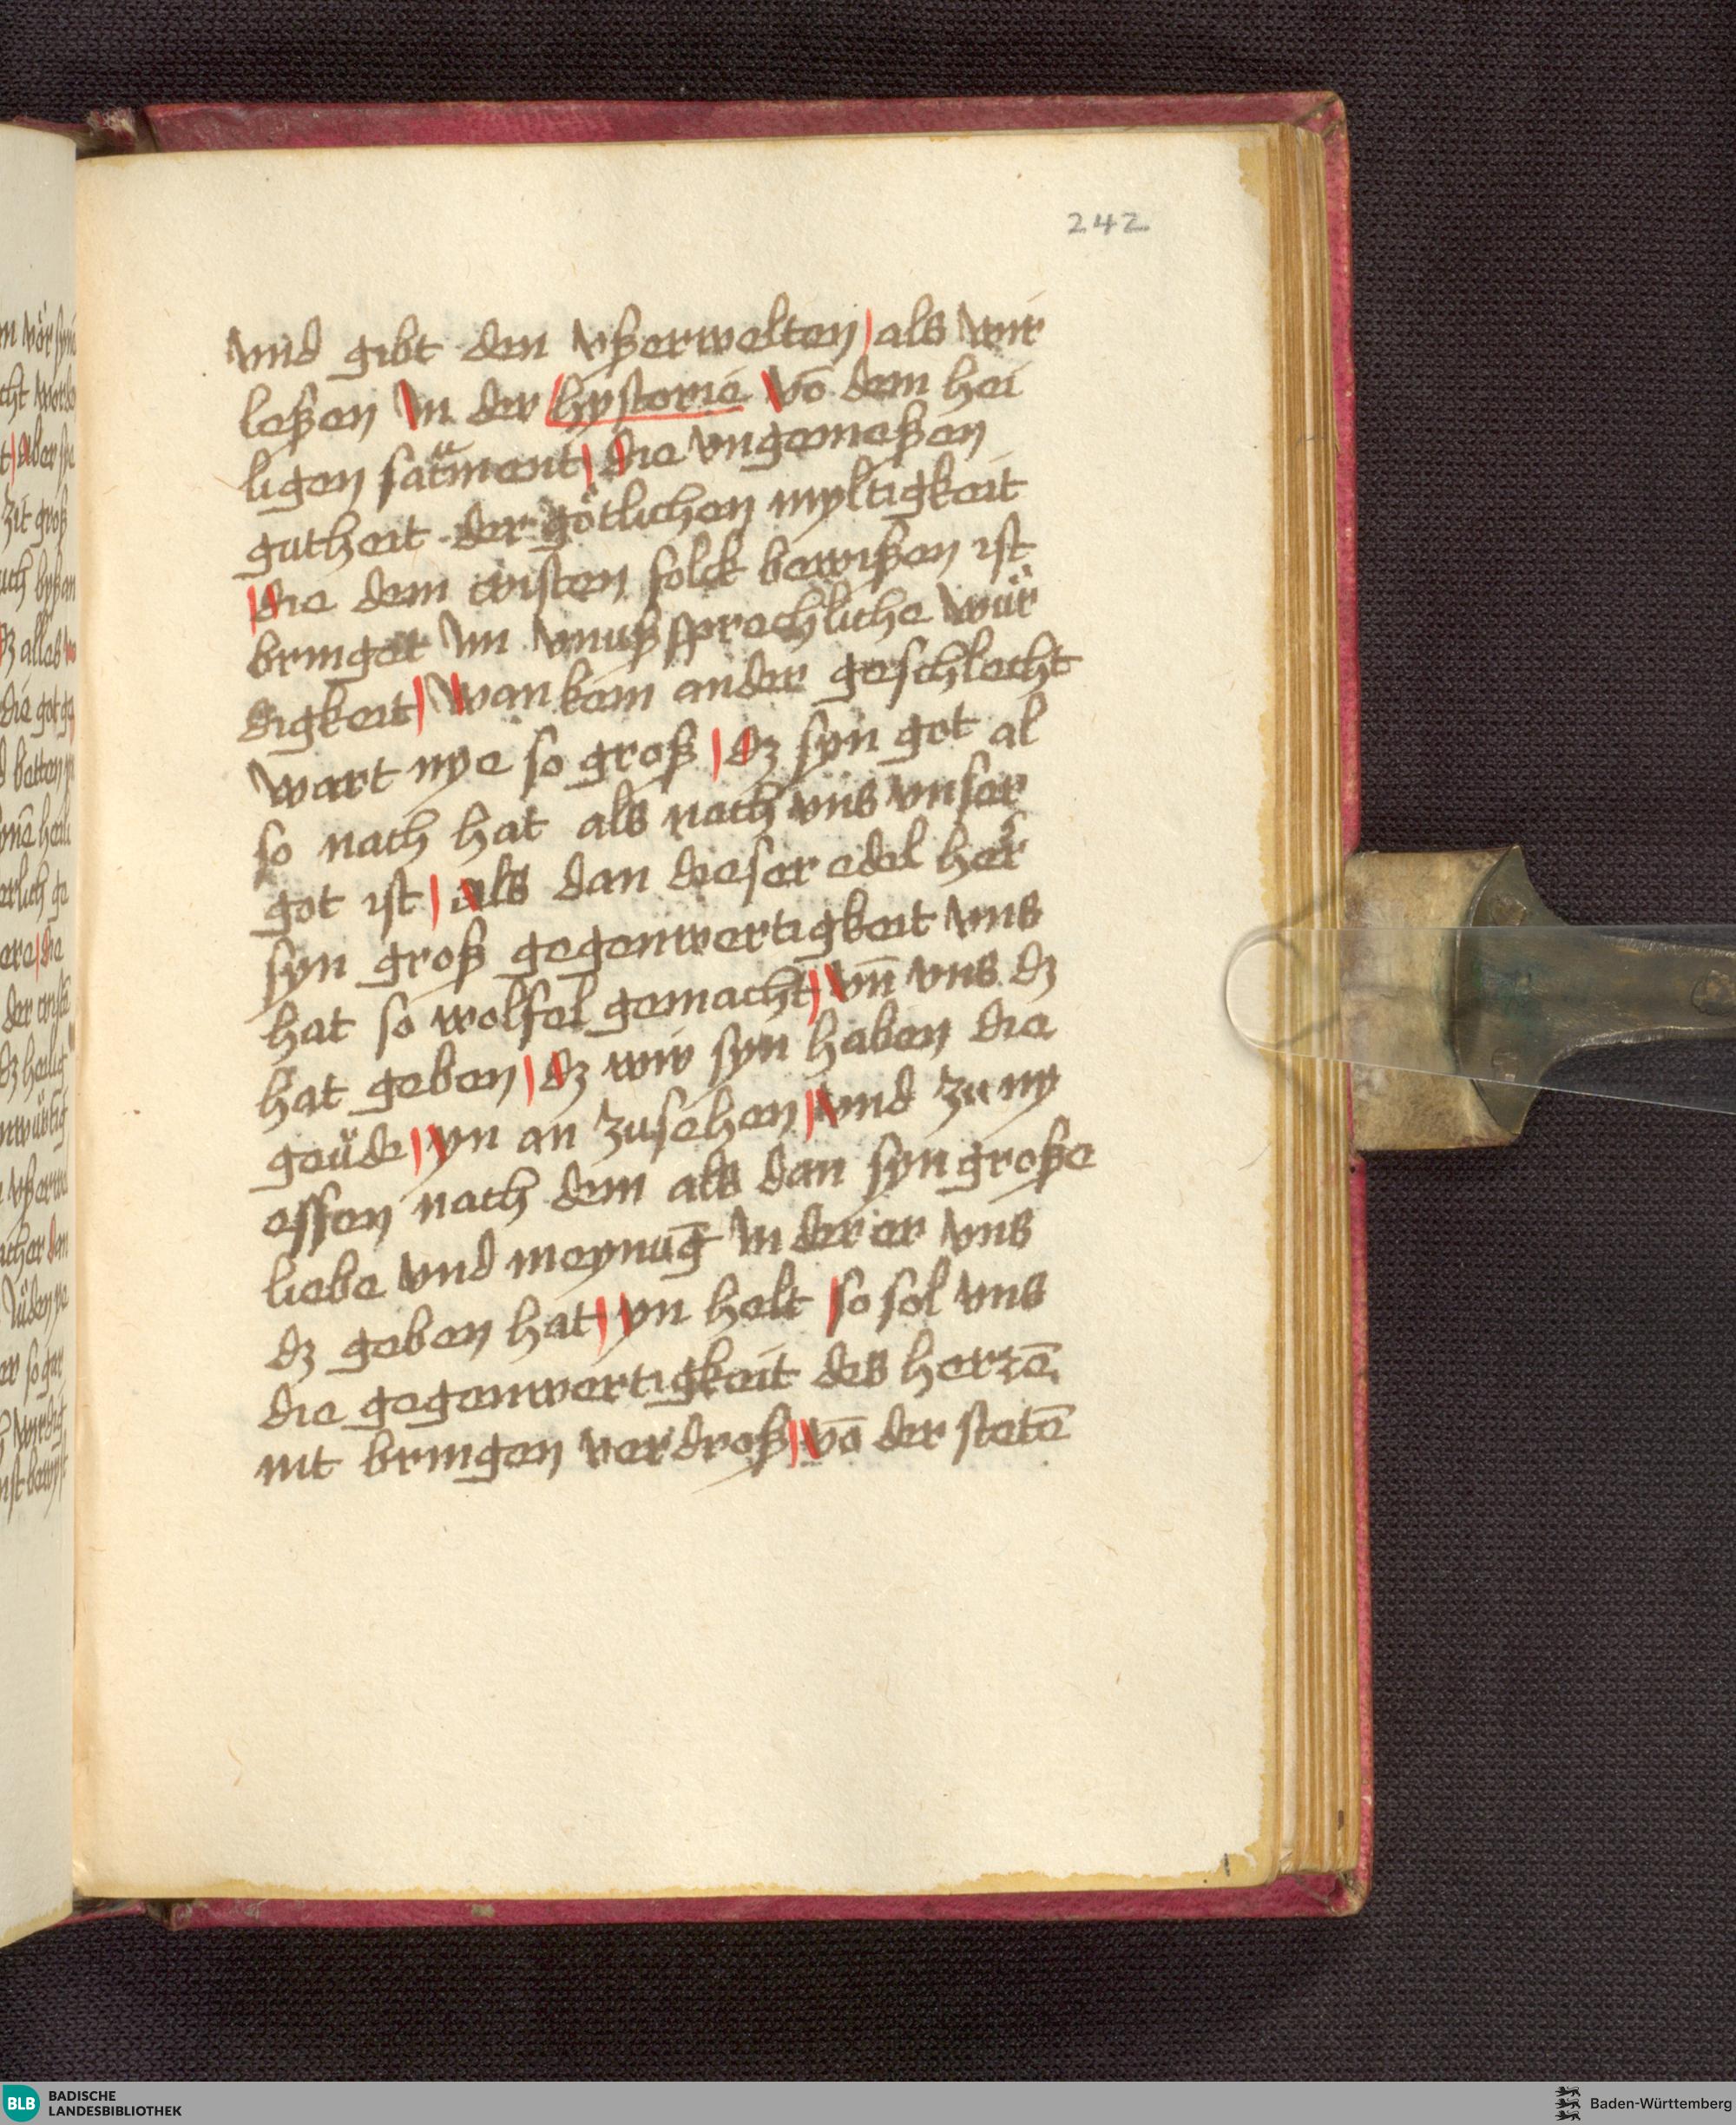 242
vnd gibt den vßerwelten | als wir
leßen Jn der hystorie vō dem hei
ligen sacͣment | die vngemeßen
gutheit der götlichen myltigkeit
| die dem cristen folck bewißen ist
bringet Jm vnußsprechliche wür
digkeit | wan kem ander geschlecht
wart nye so groß | dz syn got al
so nach hat als nach vns vnser
got ist | als dan dieser edel her
syn groß gegenwertigkeit vns
hat so wolfel gemacht | vn̄ vns dz
hat geben | dz wir syn haben die
geüde | yn an zusehen | vnd zu ny
essen nach dem als dan syn große
liebe vnd meynūg Jn der er vns
dz geben hat | yn helt | so sol vns
die gegenwertigkeit des herrē
nit bringen verdroß | vō der stetē
BLB BADISCHE
LANDESBIBLIOTHEK
Baden-Württemberg